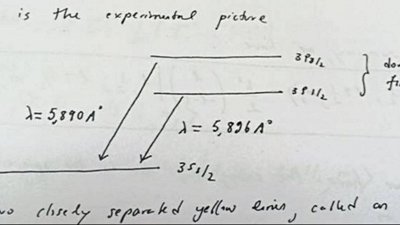 is the experimental picture
3P3/2
3P1/2
λ = 5,890 A°
λ = 5,896 A°
3S1/2
closely separated yellow lines, called an